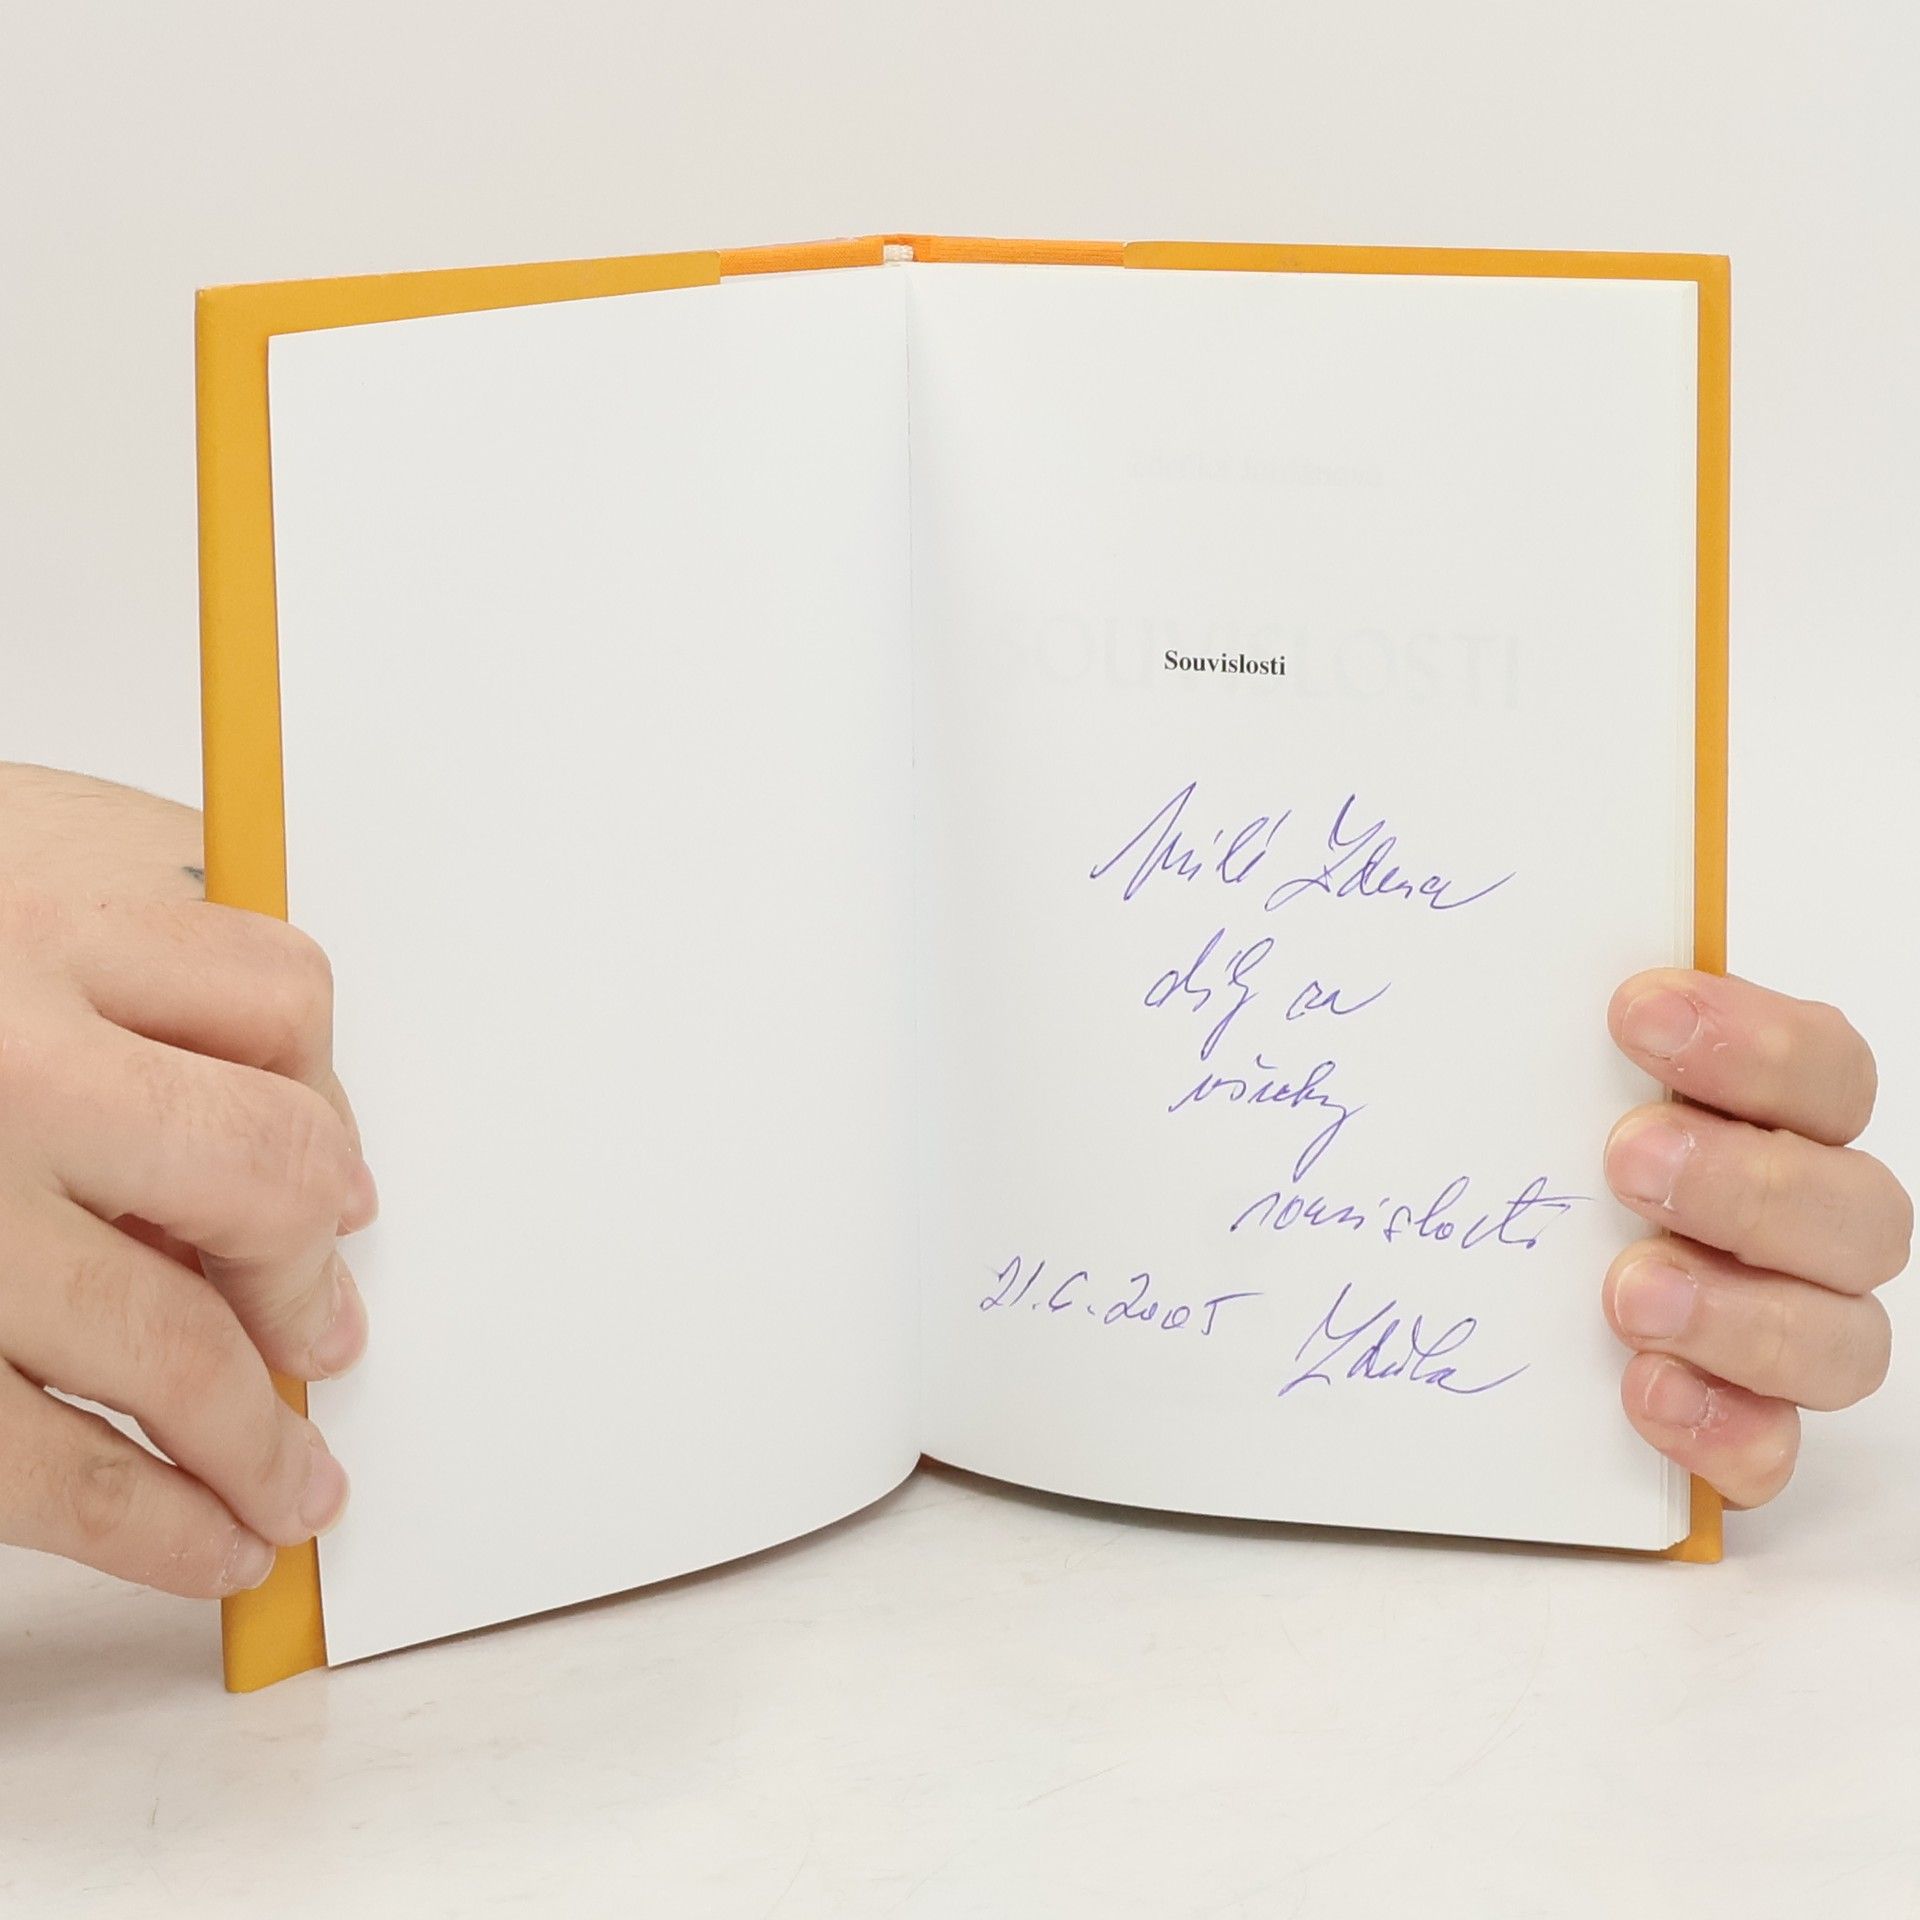 Souvislosti
Milé Zdena
díky za
všechny
souvislosti
21.6.2005